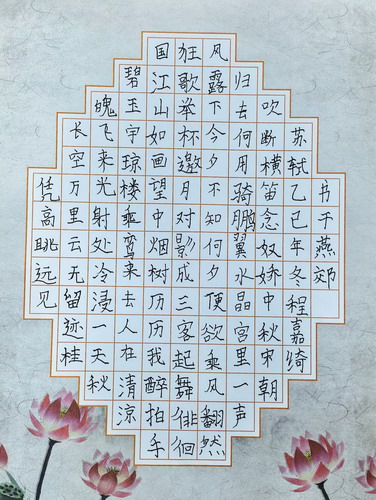 凭高眺远见
长空万里云无留迹桂
魄飞来光射处冷浸一天秋
碧玉宇琼楼乘鸾来去人在清凉
国江山如画望中烟树历历我醉拍手
狂歌举杯邀月对影成三客起舞徘徊
风露下今夕不知何夕便欲乘风翻然
归去何用骑鹏翼水晶宫里一声
吹断横笛念奴娇中秋宋朝
苏轼乙巳年冬程嘉绮
书于燕郊